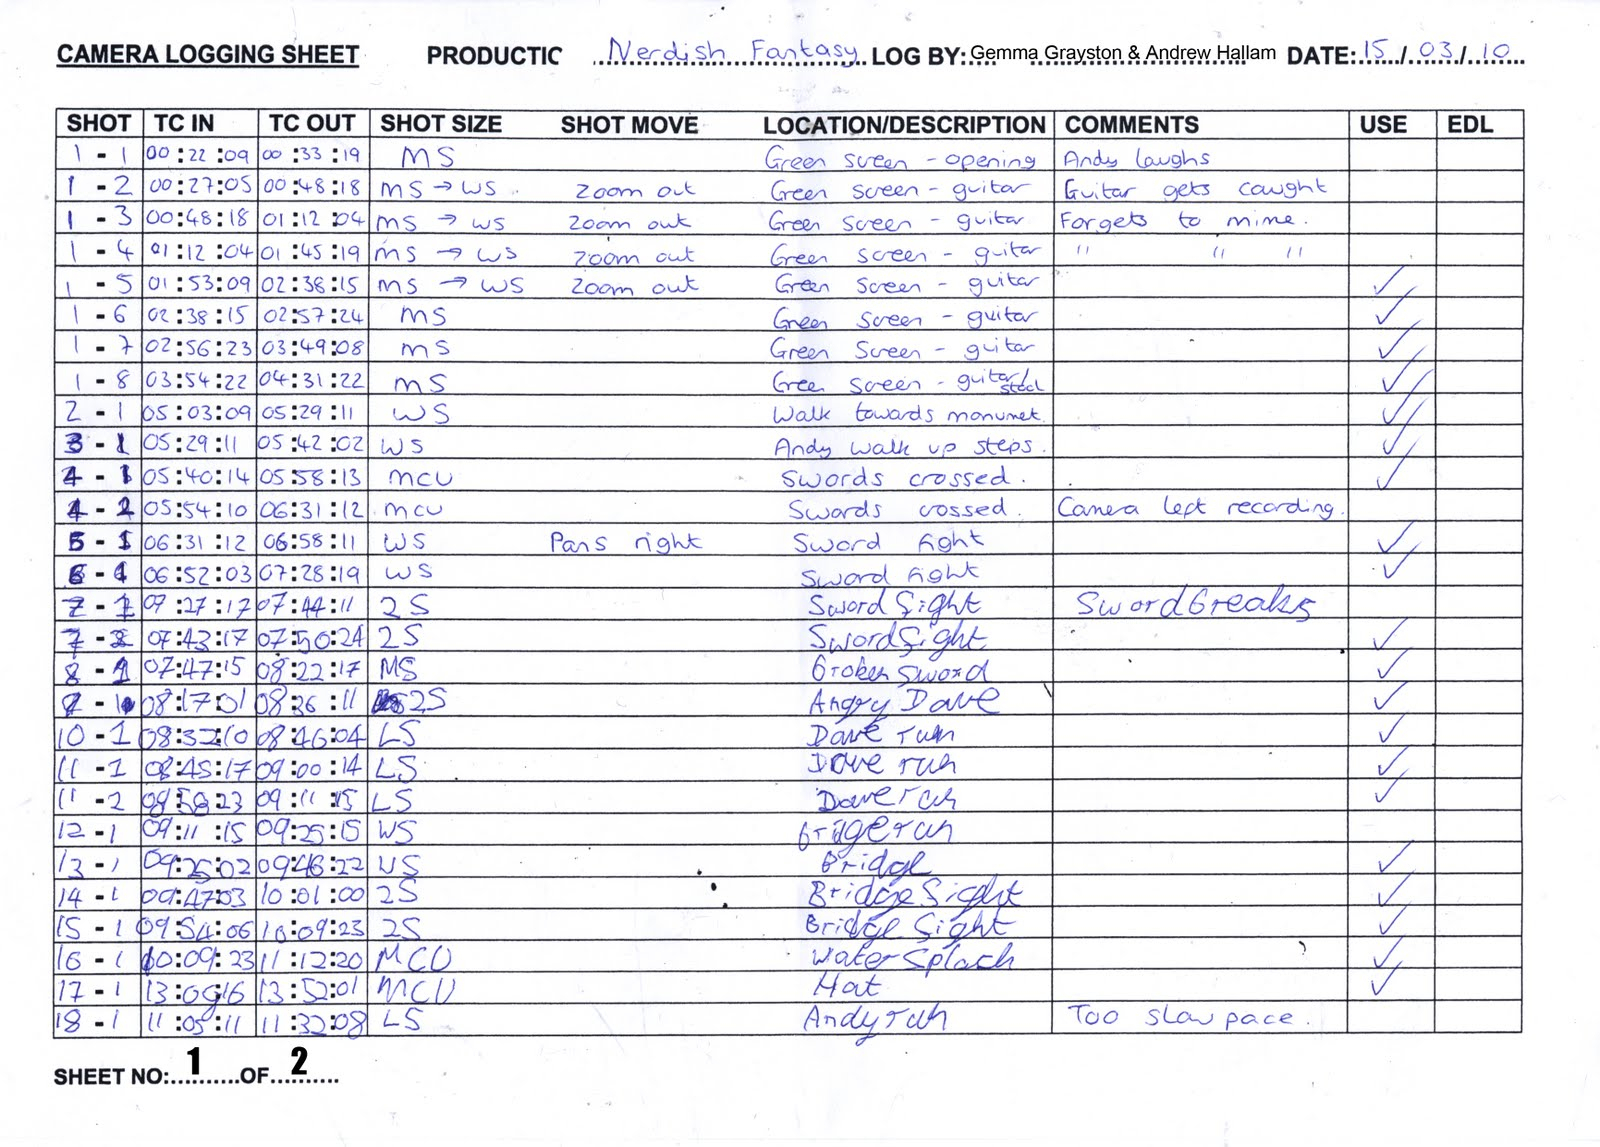 CAMERA LOGGING SHEET PRODUCTIC Nerdish Fantasy LOG BY: Gemma Grayston & Andrew Hallam DATE: 15/03/10
SHOT TC IN TC OUT SHOT SIZE SHOT MOVE LOCATION/DESCRIPTION COMMENTS USE EDL
1 - 1 00:22:09 00:33:19 MS Green screen - opening Andy laughs
1 - 2 00:27:05 00:48:18 MS → WS zoom out Green screen - guitar Guitar gets caught
1 - 3 00:48:18 01:12:04 MS → WS zoom out Green screen - guitar Forgets to mime.
1 - 4 01:12:04 01:45:19 MS → WS zoom out Green screen - guitar " " "
1 - 5 01:53:09 02:38:15 MS → WS zoom out Green screen - guitar ✓
1 - 6 02:38:15 02:57:24 MS Green screen - guitar ✓
1 - 7 02:56:23 03:49:08 MS Green screen - guitar ✓
1 - 8 03:54:22 04:31:22 MS Green screen - guitar/stool ✓
2 - 1 05:03:09 05:29:11 WS Walk towards monumet. ✓
3 - 1 05:29:11 05:42:02 WS Andy walk up steps. ✓
4 - 1 05:40:14 05:58:13 MCU Swords crossed. ✓
4 - 2 05:54:10 06:31:12 MCU Swords crossed. Camera left recording.
5 - 1 06:31:12 06:58:11 WS Pans right Sword fight ✓
6 - 1 06:52:03 07:28:19 WS Sword fight ✓
7 - 1 07:27:17 07:44:11 2S Sword fight Sword breaks
7 - 2 07:43:17 07:50:24 2S Sword fight ✓
8 - 1 07:47:15 08:22:17 MS broken sword ✓
9 - 1 08:17:01 08:36:11 2S Angry Dave ✓
10 - 1 08:32:10 08:46:04 LS Dave run ✓
11 - 1 08:45:17 09:00:14 LS Dave run ✓
11 - 2 08:58:23 09:11:15 LS Dave run ✓
12 - 1 09:11:15 09:25:15 WS bridge run
13 - 1 09:25:02 09:48:22 WS Bridge ✓
14 - 1 09:47:03 10:01:00 2S Bridge fight ✓
15 - 1 09:54:06 10:09:23 2S Bridge fight ✓
16 - 1 10:09:23 11:12:20 MCU Water splash ✓
17 - 1 13:09:16 13:52:01 MCU Hat ✓
18 - 1 11:05:11 11:32:08 LS Andy run Too slow pace.
SHEET NO: 1 OF 2